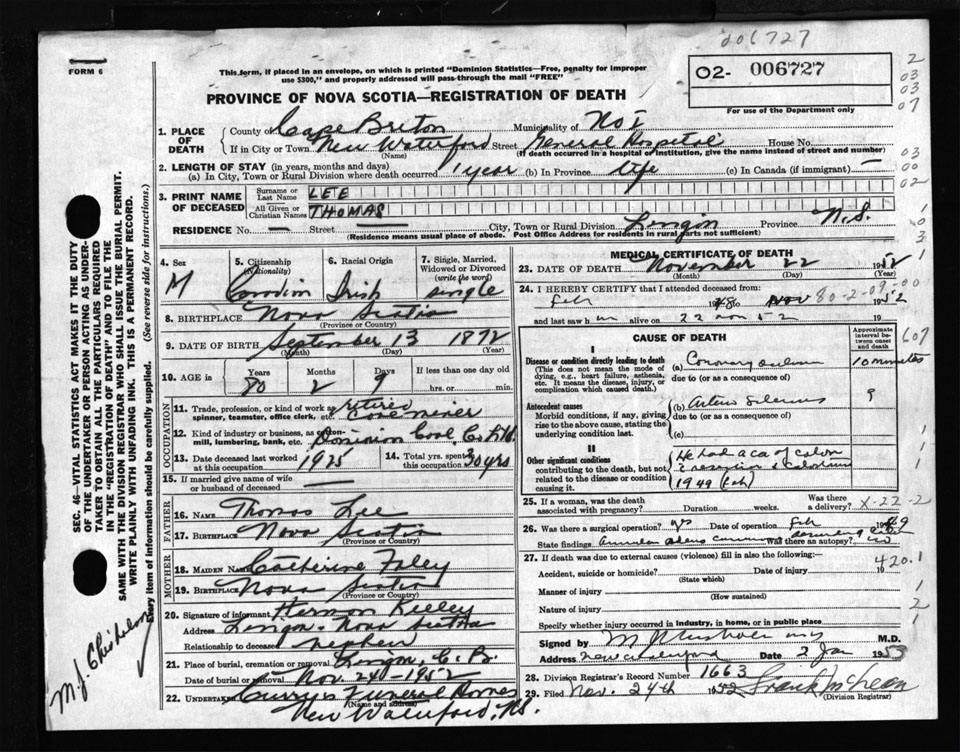 006727
FORM 6
This form, if placed in an envelope, on which is printed "Dominion Statistics—Free, penalty for improper
use $300," and properly addressed will pass through the mail "FREE"
O2- 006727
For use of the Department only
PROVINCE OF NOVA SCOTIA—REGISTRATION OF DEATH
2
03
03
07
03
00
02
1. PLACE OF DEATH
County of Cape Breton Municipality of No 1
If in City or Town New Waterford Street General Hospital House No.
(Name) (If death occurred in a hospital or institution, give the name instead of street and number)
2. LENGTH OF STAY (in years, months and days)
(a) In City, Town or Rural Division where death occurred 1 year (b) In Province Life (c) In Canada (if immigrant) —
3. PRINT NAME OF DECEASED
Surname or Last Name LEE
All Given or Christian Names THOMAS
RESIDENCE No. — Street — City, Town or Rural Division Lingan Province N.S.
(Residence means usual place of abode. Post Office Address for residents in rural parts not sufficient)
4. Sex M
5. Citizenship (Nationality)
6. Racial Origin Irish
7. Single, Married, Widowed or Divorced (write the word) single
8. BIRTHPLACE Nova Scotia
(Province or Country)
9. DATE OF BIRTH September 13 1872
(Month) (Day) (Year)
10. AGE in Years 80 Months 2 Days 9 If less than one day
hrs. or min.
OCCUPATION
11. Trade, profession, or kind of work as spinner, teamster, office clerk, etc. retired coal miner
12. Kind of industry or business, as cotton-mill, lumbering, bank, etc. Dominion Coal Co Ltd.
13. Date deceased last worked at this occupation 1925
14. Total yrs. spent in this occupation 30 yrs
15. If married give name of wife or husband of deceased —
FATHER
16. NAME Thomas Lee
17. BIRTHPLACE Nova Scotia
(Province or Country)
MOTHER
18. MAIDEN NAME Catherine Foley
19. BIRTHPLACE Nova Scotia
(Province or Country)
20. Signature of informant
Address Lingan - Nova Scotia
Relationship to deceased nephew
21. Place of burial, cremation or removal Lingan, C.B.
Date of burial or removal Nov. 24 - 1952
22. UNDERTAKER Curry's Funeral Homes
(Name and address)
New Waterford, N.S.
MEDICAL CERTIFICATE OF DEATH
23. DATE OF DEATH November 22 1952
(Month) (Day) (Year)
24. I HEREBY CERTIFY that I attended deceased from:
Feb 1948 to Nov 1952
80-2-09-00
and last saw him alive on 22 nov 52 19
CAUSE OF DEATH
Approximate interval between onset and death
I
Disease or condition directly leading to death
(This does not mean the mode of dying, e.g., heart failure, asthenia, etc. It means the disease, injury, or complication which caused death.)
(a) Coronary 10 minutes
due to (or as a consequence of)
Antecedent causes
Morbid conditions, if any, giving rise to the above cause, stating the underlying condition last.
(b) ?
due to (or as a consequence of)
(c)
II
Other significant conditions
contributing to the death, but not related to the disease or condition causing it.
He had a ca of colon
1949 (Feb)
607
25. If a woman, was the death associated with pregnancy? Duration weeks. Was there a delivery?
X-22-2
26. Was there a surgical operation? yes Date of operation Feb 1949
State findings Was there an autopsy? no
27. If death was due to external causes (violence) fill in also the following:—
420.1
Accident, suicide or homicide? Date of injury 19
(State which)
Manner of injury
(How sustained)
Nature of injury
Specify whether injury occurred in industry, in home, or in public place
Signed by M.D.
Address New Waterford Date 2 Jan 1953
28. Division Registrar's Record Number 1663
29. Filed Nov. 24th 1952
(Division Registrar)
SEC. 46—VITAL STATISTICS ACT MAKES IT THE DUTY
OF THE UNDERTAKER OR PERSON ACTING AS UNDERTAKER TO OBTAIN ALL THE PARTICULARS REQUIRED
IN THE "REGISTRATION OF DEATH" AND TO FILE THE
SAME WITH THE DIVISION REGISTRAR WHO SHALL ISSUE THE BURIAL PERMIT.
WRITE PLAINLY WITH UNFADING INK. THIS IS A PERMANENT RECORD.
Every item of information should be carefully supplied. (See reverse side for instructions.)
M.J. Chisholm